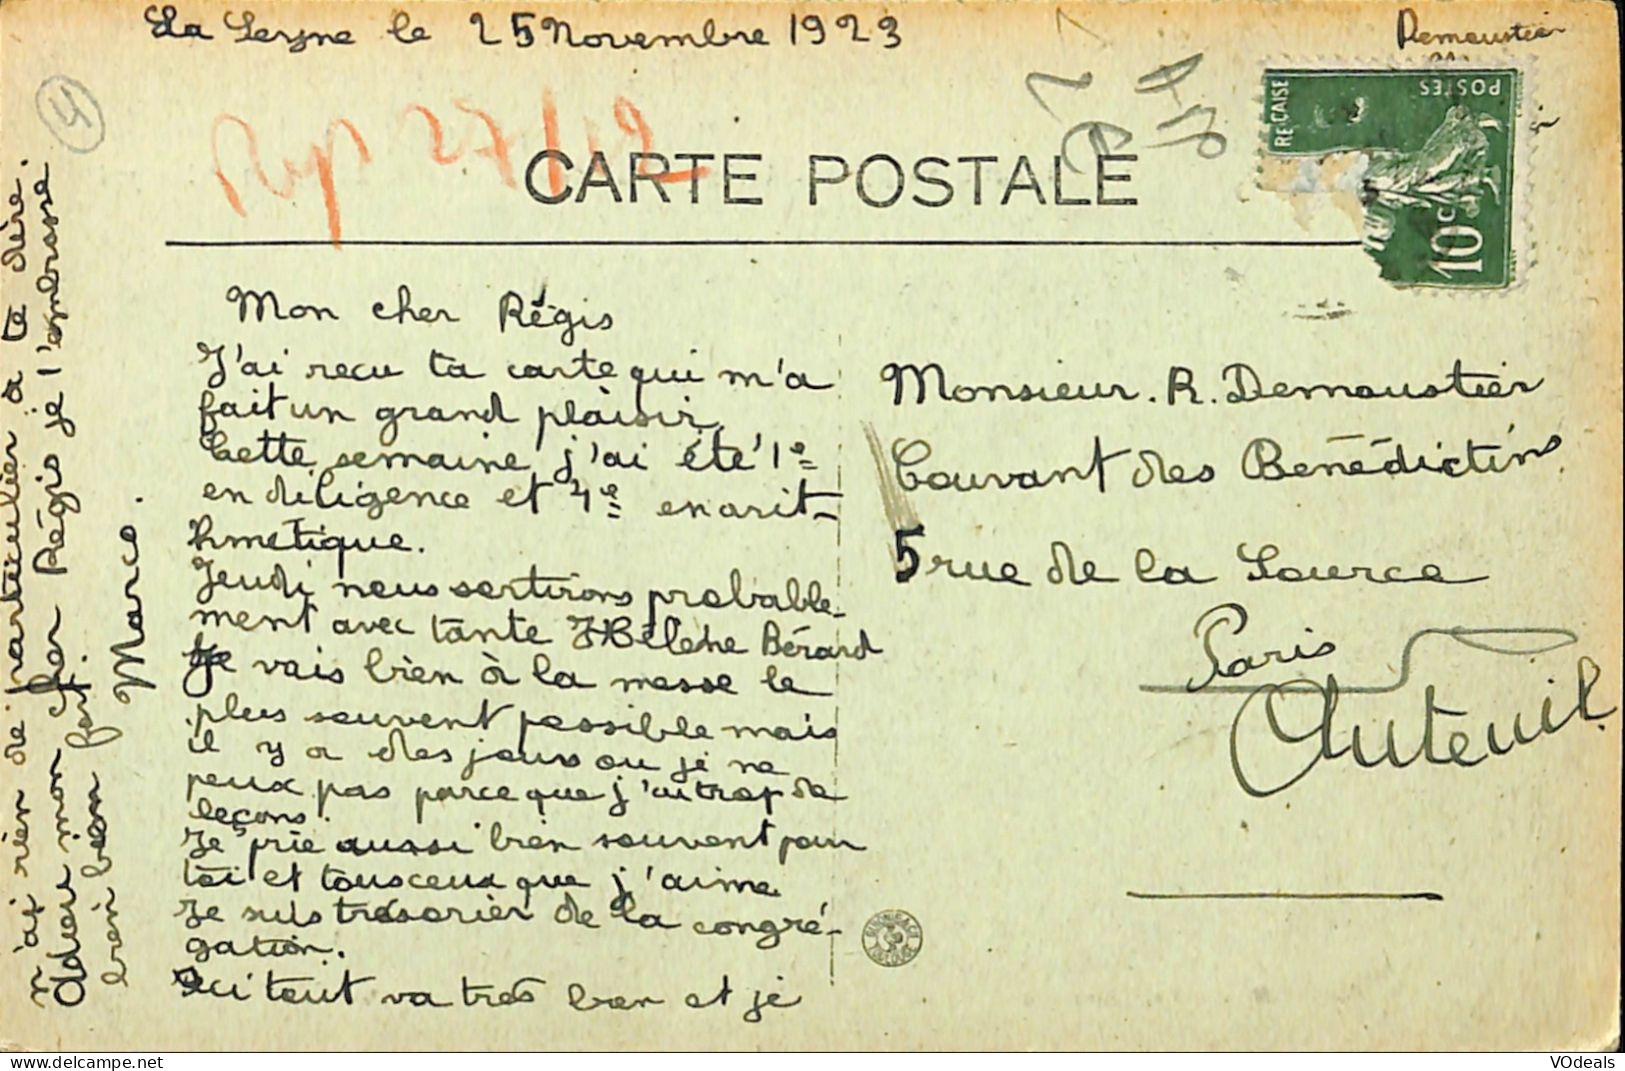 La Seyne le 25 Novembre 1923
Demoustier
Rep 27/12
CARTE POSTALE
POSTES
10c
Mon cher Régis
J'ai recu ta carte qui m'a
fait un grand plaisir.
Cette semaine j'ai été 1e
en diligence et 4e en arit-
hmetique.
Jeudi nous sortirons probable-
ment avec tante Hélène Bérard
Je vais bien à la messe le
plus souvent possible mais
il y a des jours ou je ne
peux pas parce que j'ai trop de
leçons.
Je prie aussi bien souvent pour
toi et tous ceux que j'aime
Je suis trésorier de la congré-
gation.
Ici tout va très bien et je
n'ai rien de particulier à te dire.
Adieu mon cher Régis je t'embrasse
bien bien fort.
Marco.
Monsieur. R. Demoustier
Couvant des Bénédictins
5 rue de la Source
Paris
Auteuil
VOdeals
https://www.delcampe.net